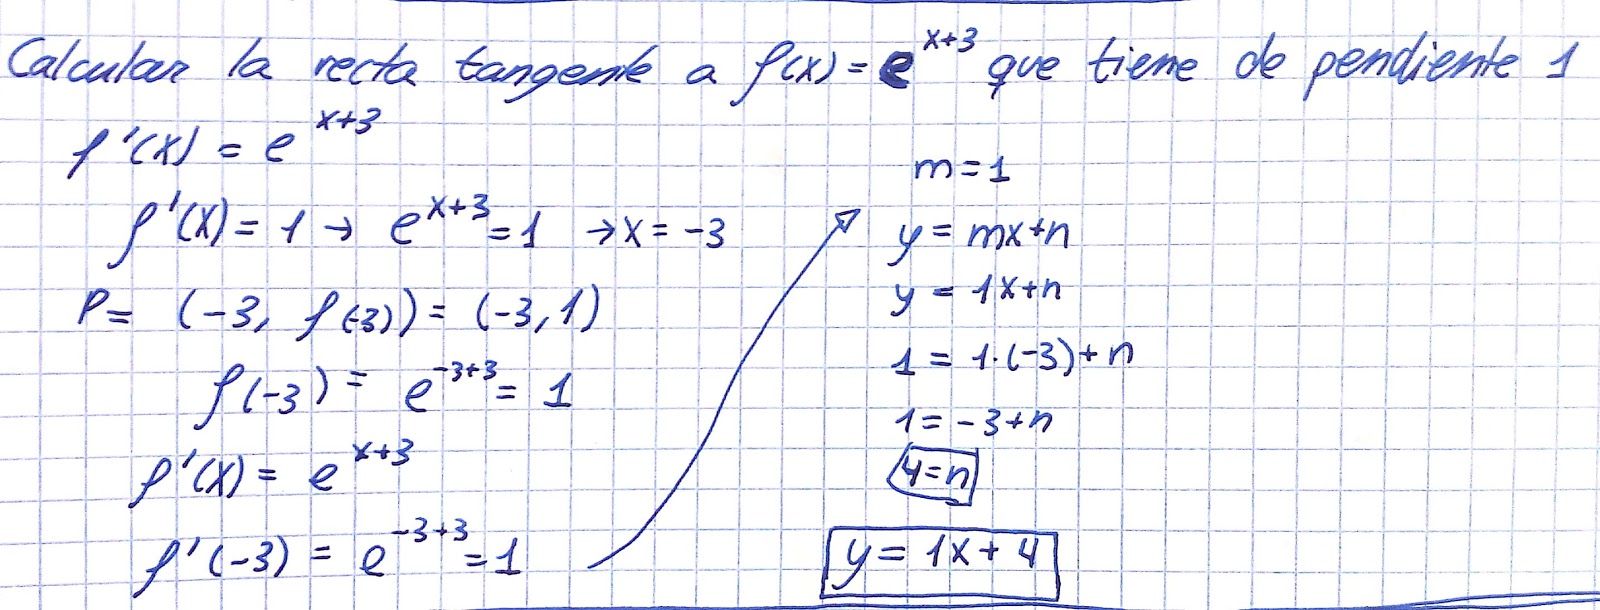 Calcular la recta tangente a f(x) = e^(x+3) que tiene de pendiente 1
f'(x) = e^(x+3)
f'(x) = 1 → e^(x+3) = 1 → x = -3
P = (-3, f(-3)) = (-3, 1)
f(-3) = e^(-3+3) = 1
f'(x) = e^(x+3)
f'(-3) = e^(-3+3) = 1
m = 1
y = mx + n
y = 1x + n
1 = 1·(-3) + n
1 = -3 + n
4 = n
y = 1x + 4